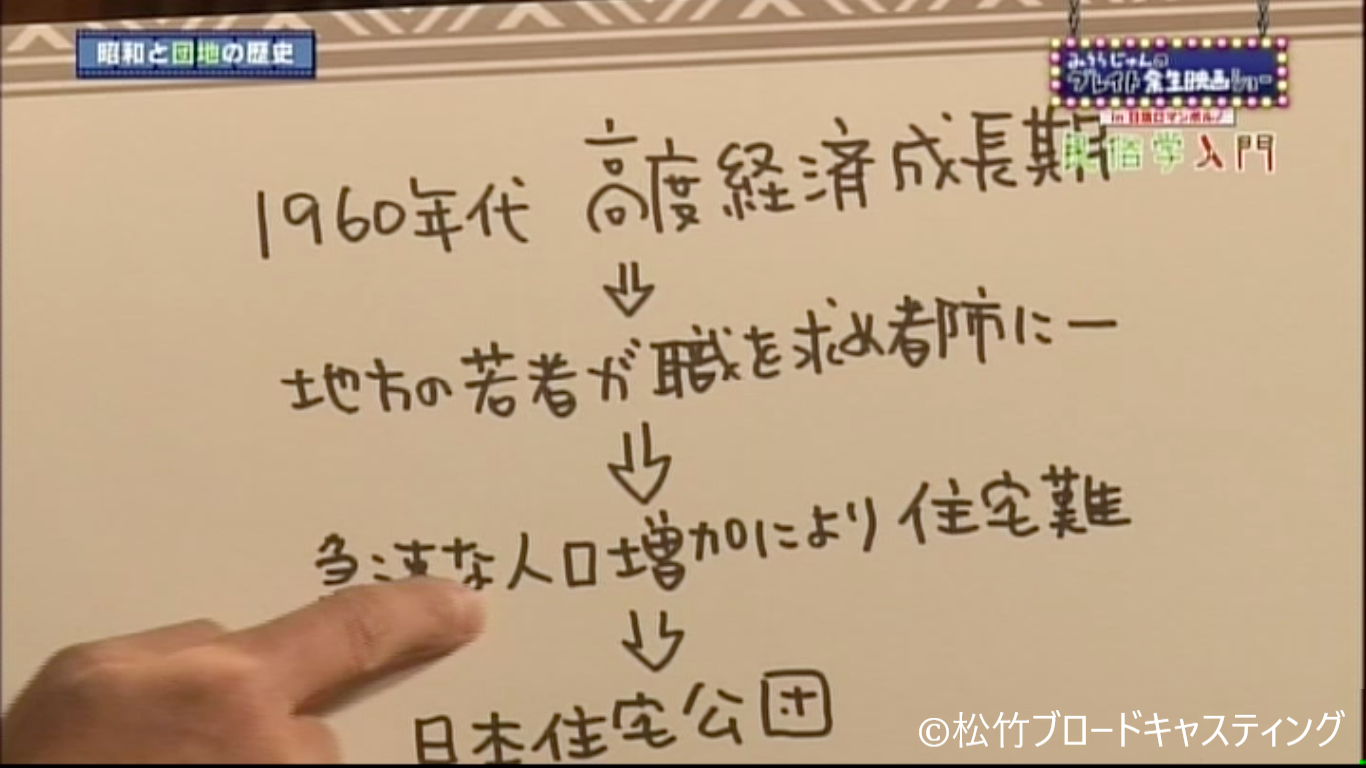 昭和と団地の歴史
みうらじゅんの
グレイト余生映画ショー
in 日活ロマンポルノ
俗学入門
1960年代 高度経済成長期
⇓
地方の若者が職を求め者師に一
⇓
急速な人口増加により住宅難
⇓
日本住宅公団
©松竹ブロードキャスティング